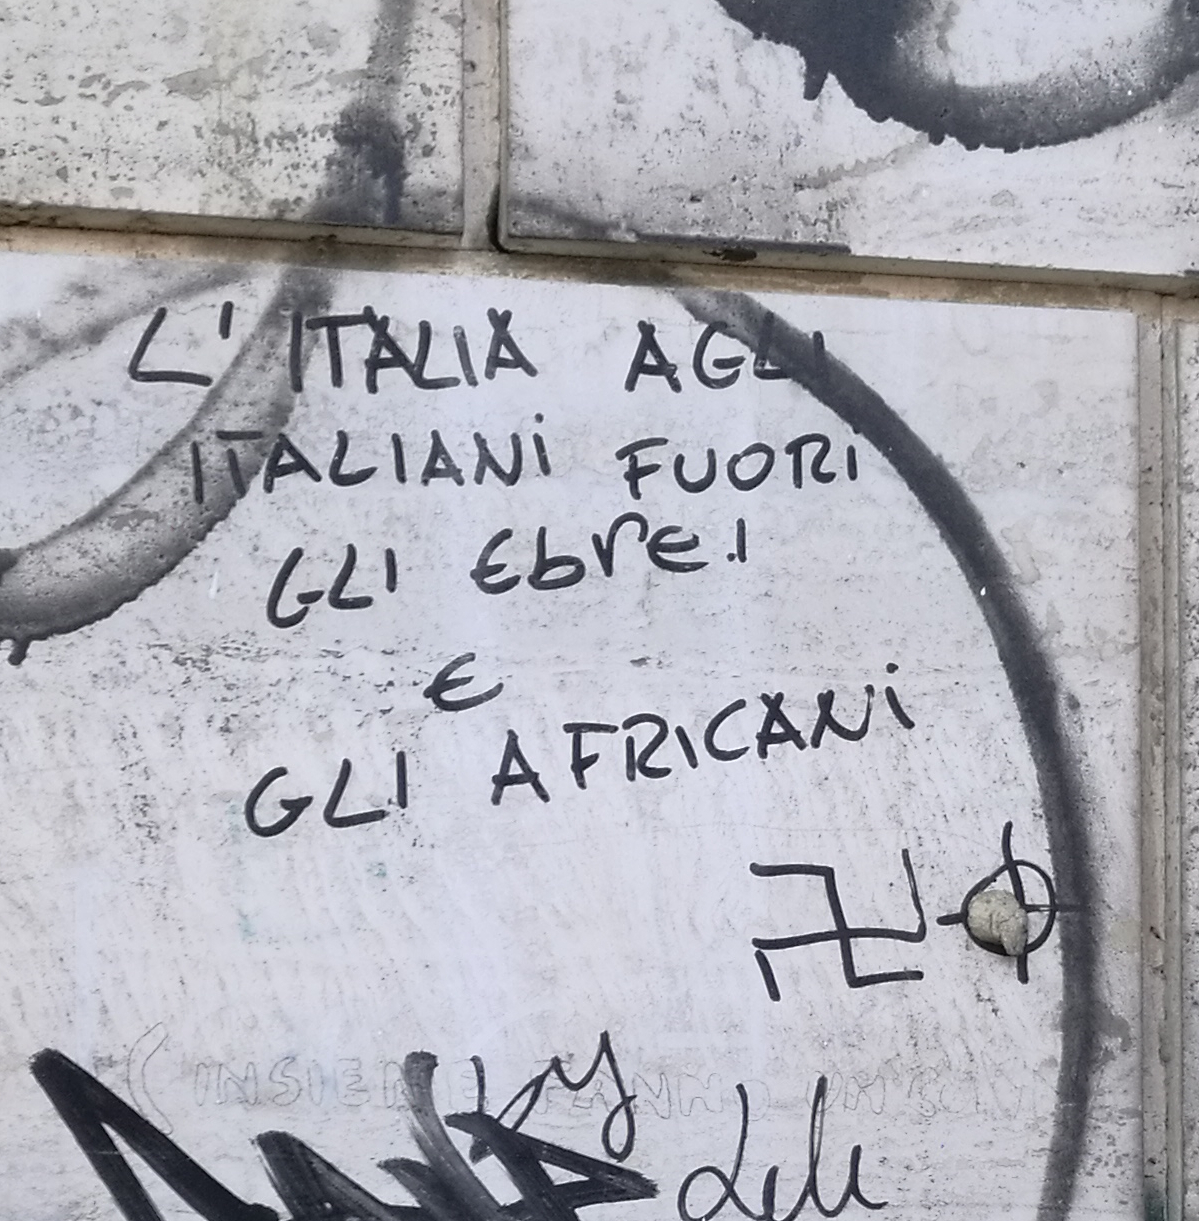 L'ITALIA AGLI
ITALIANI FUORI
GLI EbrEI
E
GLI AFRICANI
INSIEME FANNO UN